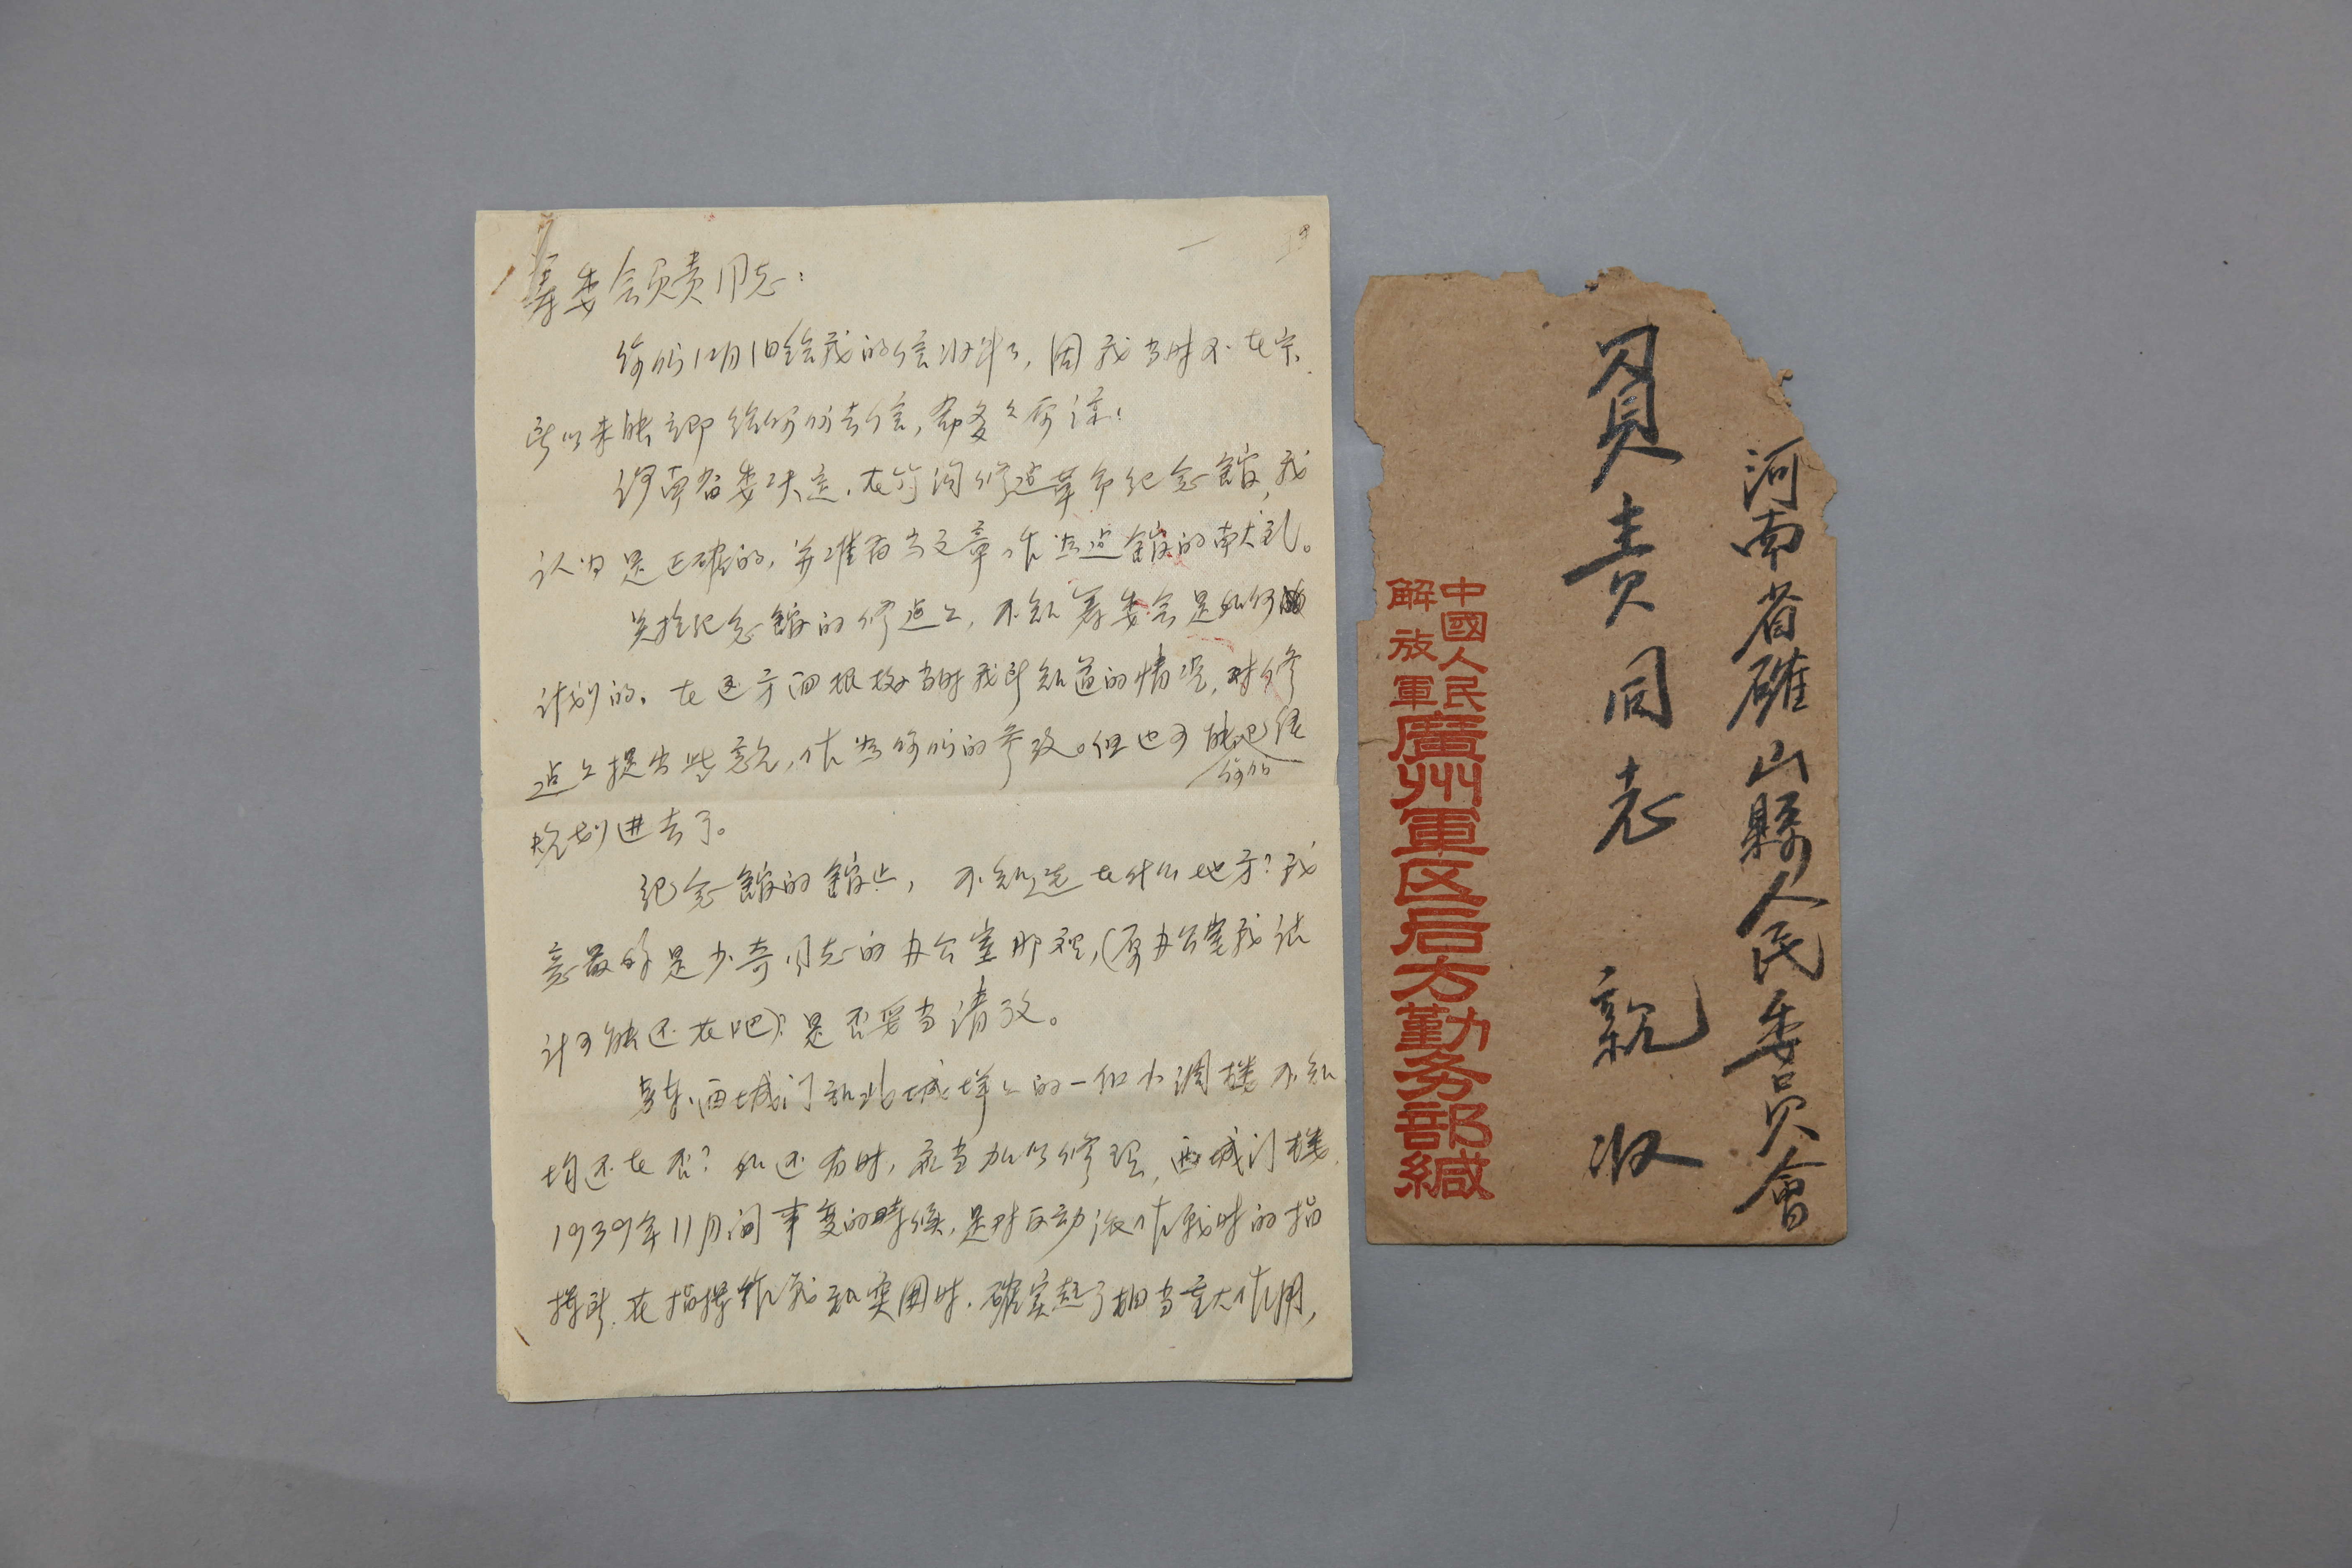 筹委会负责同志：
你们12月1日给我的信收到了，因我当时不在家，
所以未能立即给你们去信，希多多原谅！
河南省委决定，在竹沟修建革命纪念馆，我
认为是正确的，并准备写文章，作为建馆的献礼。
关于纪念馆的修建上，不知筹委会是如何
计划的。在这方面根据当时我所知道的情况，对修
建上提出些意见，作为你们的参考。但也可能已经
你们
规划进去了。
纪念馆的馆址，不知选在什么地方？我
意最好是少奇同志的办公室那里，(原办公室我估
计可能还在吧)？是否妥当请考。
东、西城门和北城墙上的一个小碉楼不知
均还在否？如还有时，应当加以修理，西城门楼，
1939年11月间事变的时候，是对反动派作战时的指
挥所，在指挥作战和突围时，确实起了相当重大作用，
河南省确山縣人民委员會
負责同志 親收
中國人民
解放軍
廣州軍区后方勤务部緘